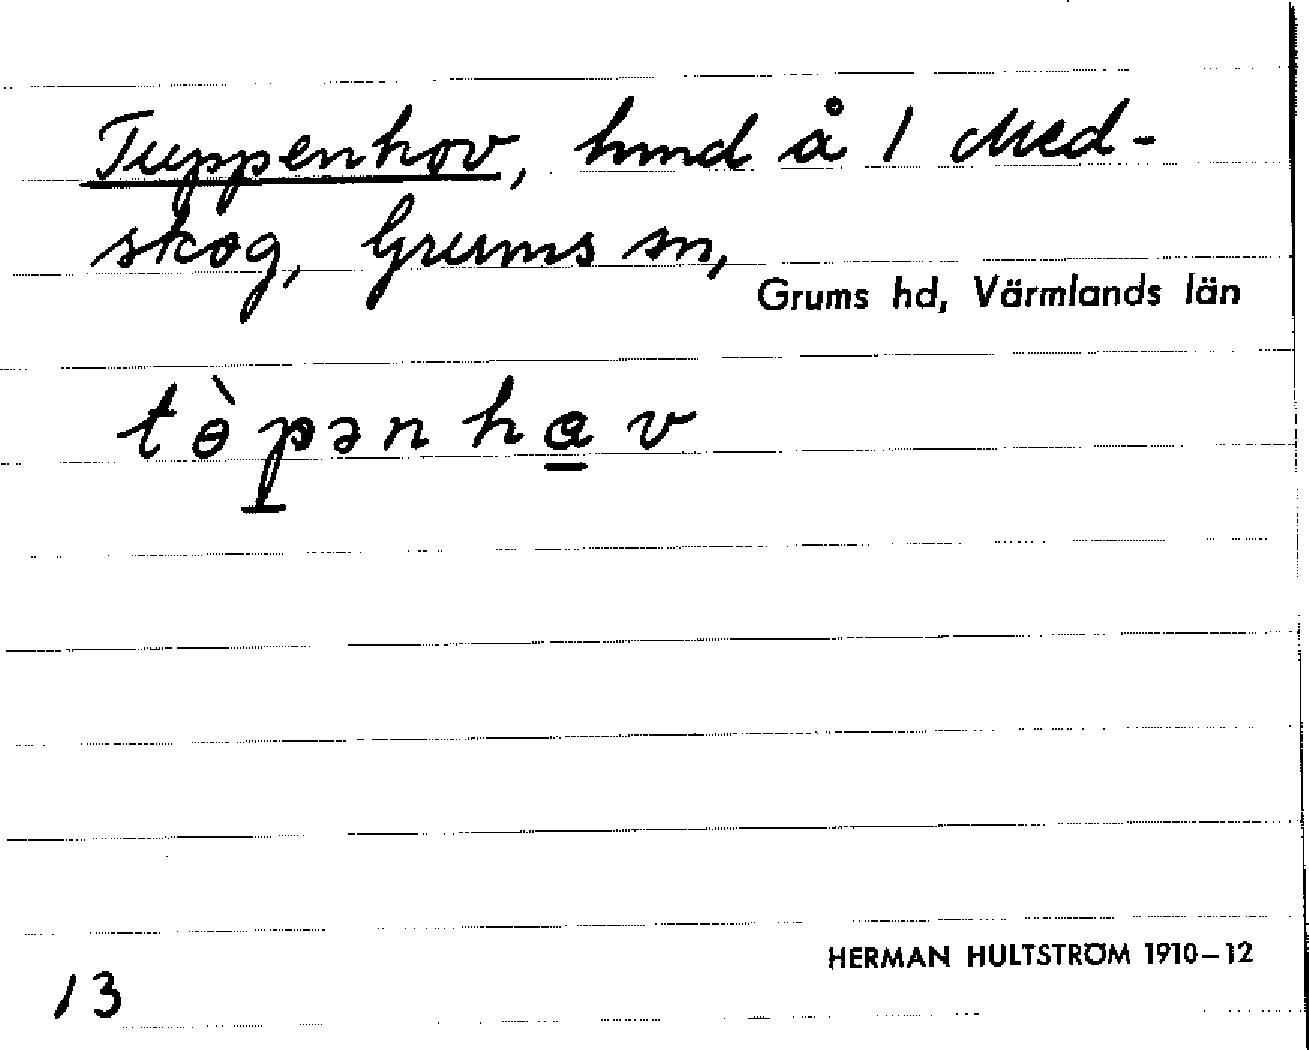 Tuppenhov, hmd å 1 Med-
skog, Grums sn,
Grums hd, Värmlands län
tɵ̀p̠ənha̠v
HERMAN HULTSTRÖM 1910–12
13